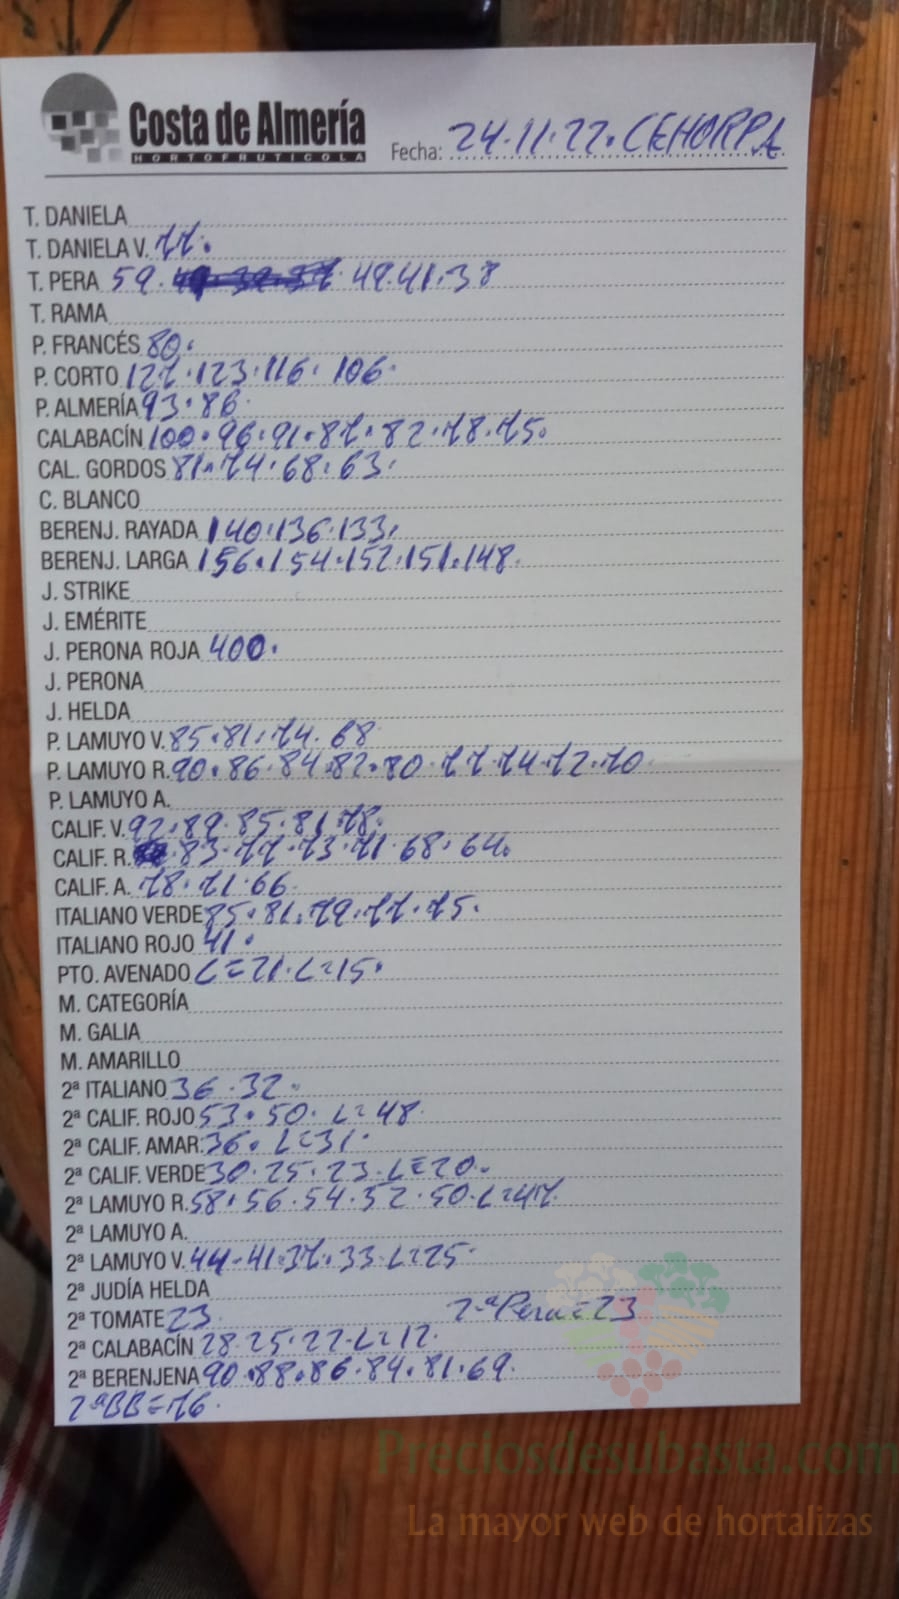 Costa de Almería
HORTOFRUTÍCOLA
Fecha: 24.11.22. CEHORPA
T. DANIELA
T. DANIELA V. 77.
T. PERA 59. 49.41.38
T. RAMA
P. FRANCÉS 80.
P. CORTO 127.123.116.106.
P. ALMERÍA 93.86
CALABACÍN 100.96.91.87.82.78.75.
CAL. GORDOS 81.74.68.63.
C. BLANCO
BERENJ. RAYADA 140.136.133.
BERENJ. LARGA 156.154.152.151.148.
J. STRIKE
J. EMÉRITE
J. PERONA ROJA 400.
J. PERONA
J. HELDA
P. LAMUYO V. 85.81.74.68
P. LAMUYO R. 90.86.84.82.80.77.74.72.70
P. LAMUYO A.
CALIF. V. 92.89.85.81.78.
CALIF. R. 83.77.73.71.68.64.
CALIF. A. 78.71.66
ITALIANO VERDE 85.81.79.77.75.
ITALIANO ROJO 41.
PTO. AVENADO L=21.L=15.
M. CATEGORÍA
M. GALIA
M. AMARILLO
2ª ITALIANO 36.32.
2ª CALIF. ROJO 53.50. L=48
2ª CALIF. AMAR. 36. L=31.
2ª CALIF. VERDE 30.25.23.L=20.
2ª LAMUYO R. 58.56.54.52.50.L=47
2ª LAMUYO A.
2ª LAMUYO V. 44.41.37.33.L=25
2ª JUDÍA HELDA
2ª TOMATE 23 2ª Pera=23
2ª CALABACÍN 28.25.22.L=12.
2ª BERENJENA 90.88.86.84.81.69.
2ªBB=76.
Preciosdesubasta.com
La mayor web de hortalizas